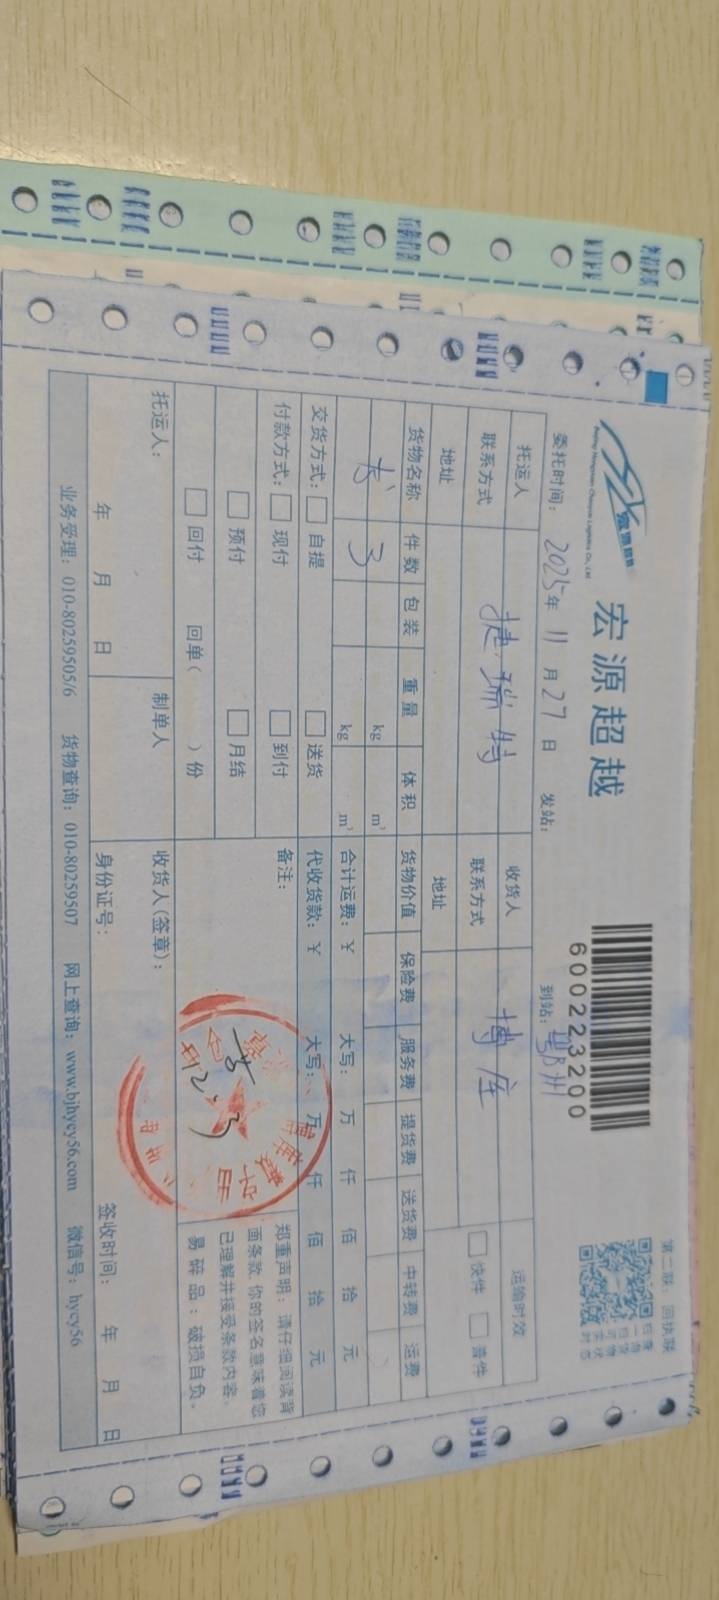 第二联：回执联
宏源超越
Beijing Hongyuan Chaoyue Logistics Co., Ltd
600223200
委托时间：2025年11月27日 发站： 到站：鄂州
托运人 捷瑞特 收货人 博座 运输时效
联系方式 联系方式 快件 普件
地址 地址
货物名称 件数 包装 重量 体积 货物价值 保险费 服务费 提货费 送货费 中转费 运费
kg m³
3 kg m³ 合计运费：￥ 大写： 万 仟 佰 拾 元
交货方式： 自提 送货 代收货款：￥ 大写： 万 仟 佰 拾 元
付款方式： 现付 到付 备注：
预付 月结
回付 回单（ ）份
郑重声明：请仔细阅读背
面条款，你的签名意味着您
已理解并接受条款内容。
易碎品：破损自负。
托运人： 制单人 收货人(签章)：
年 月 日 身份证号： 签收时间： 年 月 日
业务受理：010-80259505/6 货物查询：010-80259507 网上查询：www.bjhycy56.com 微信号：hycy56